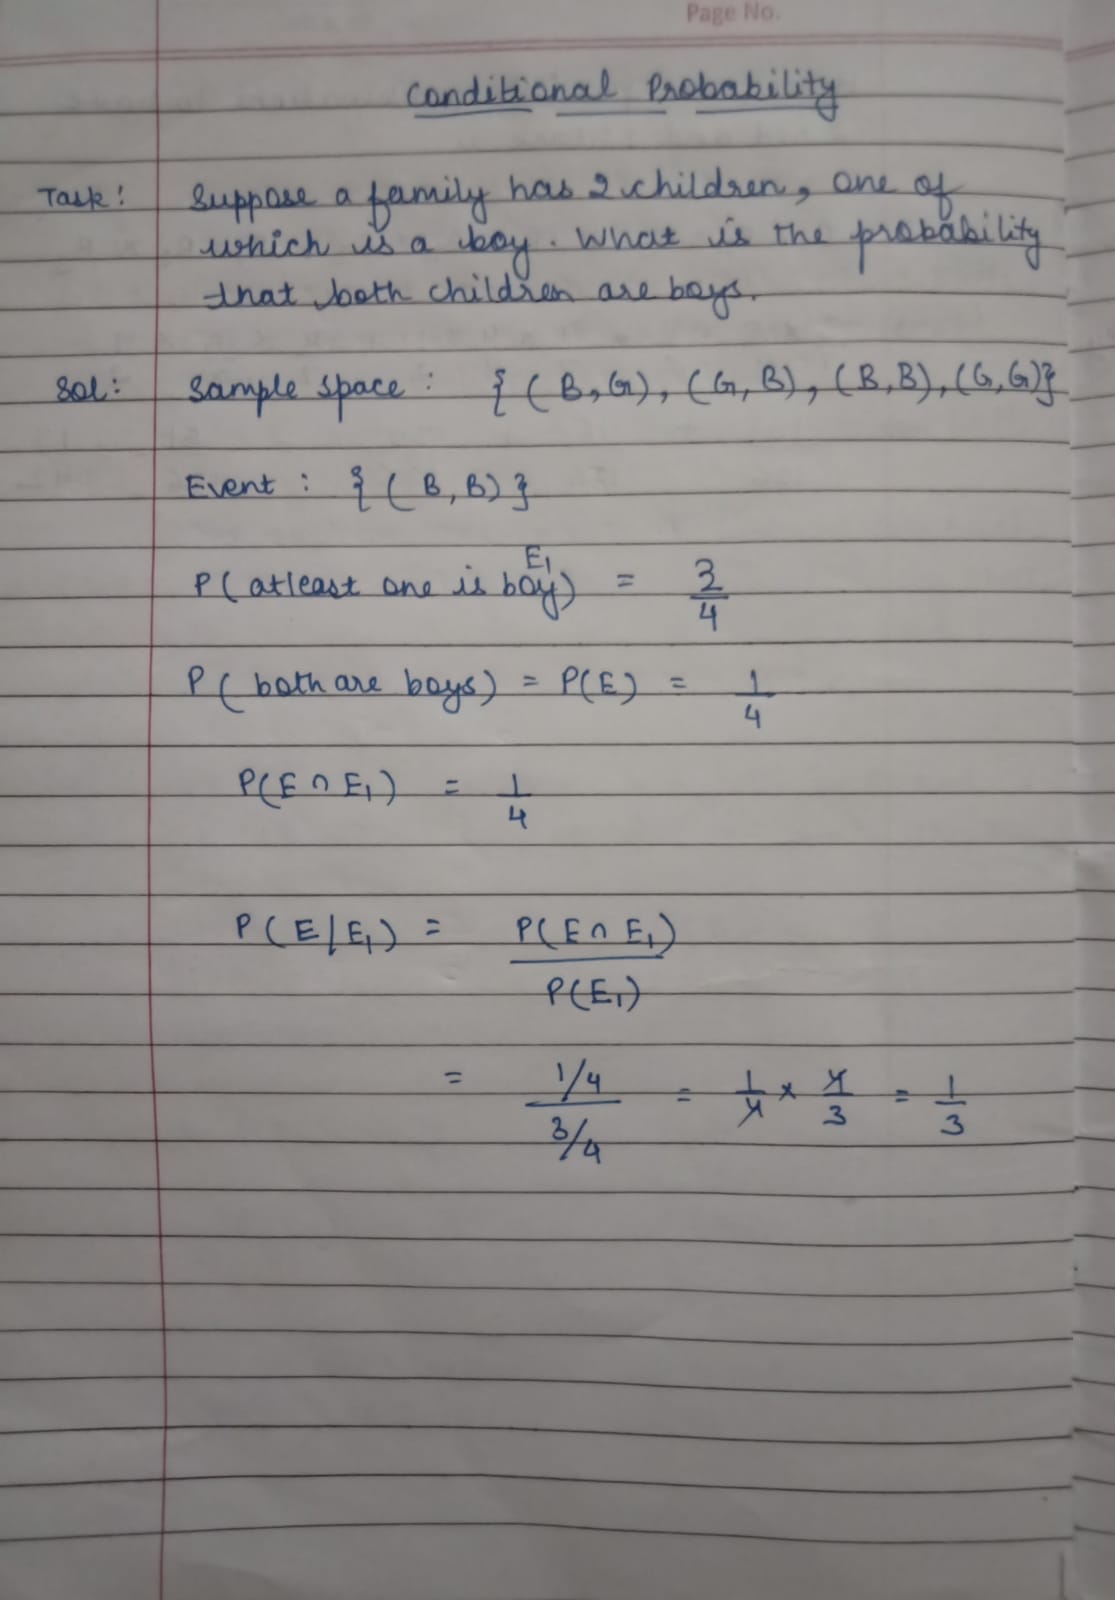 Page No.
Conditional Probability
Task: Suppose a family has 2 children, one of
which is a boy. What is the probability
that both children are boys.
Sol: Sample space : { (B,G), (G,B), (B,B), (G,G)}
Event : { (B,B) }
E₁
P( atleast one is boy) = 3/4
P( both are boys) = P(E) = 1/4
P(E ∩ E₁) = 1/4
P(E|E₁) = P(E ∩ E₁) / P(E₁)
= 1/4 / 3/4 = 1/4 × 4/3 = 1/3